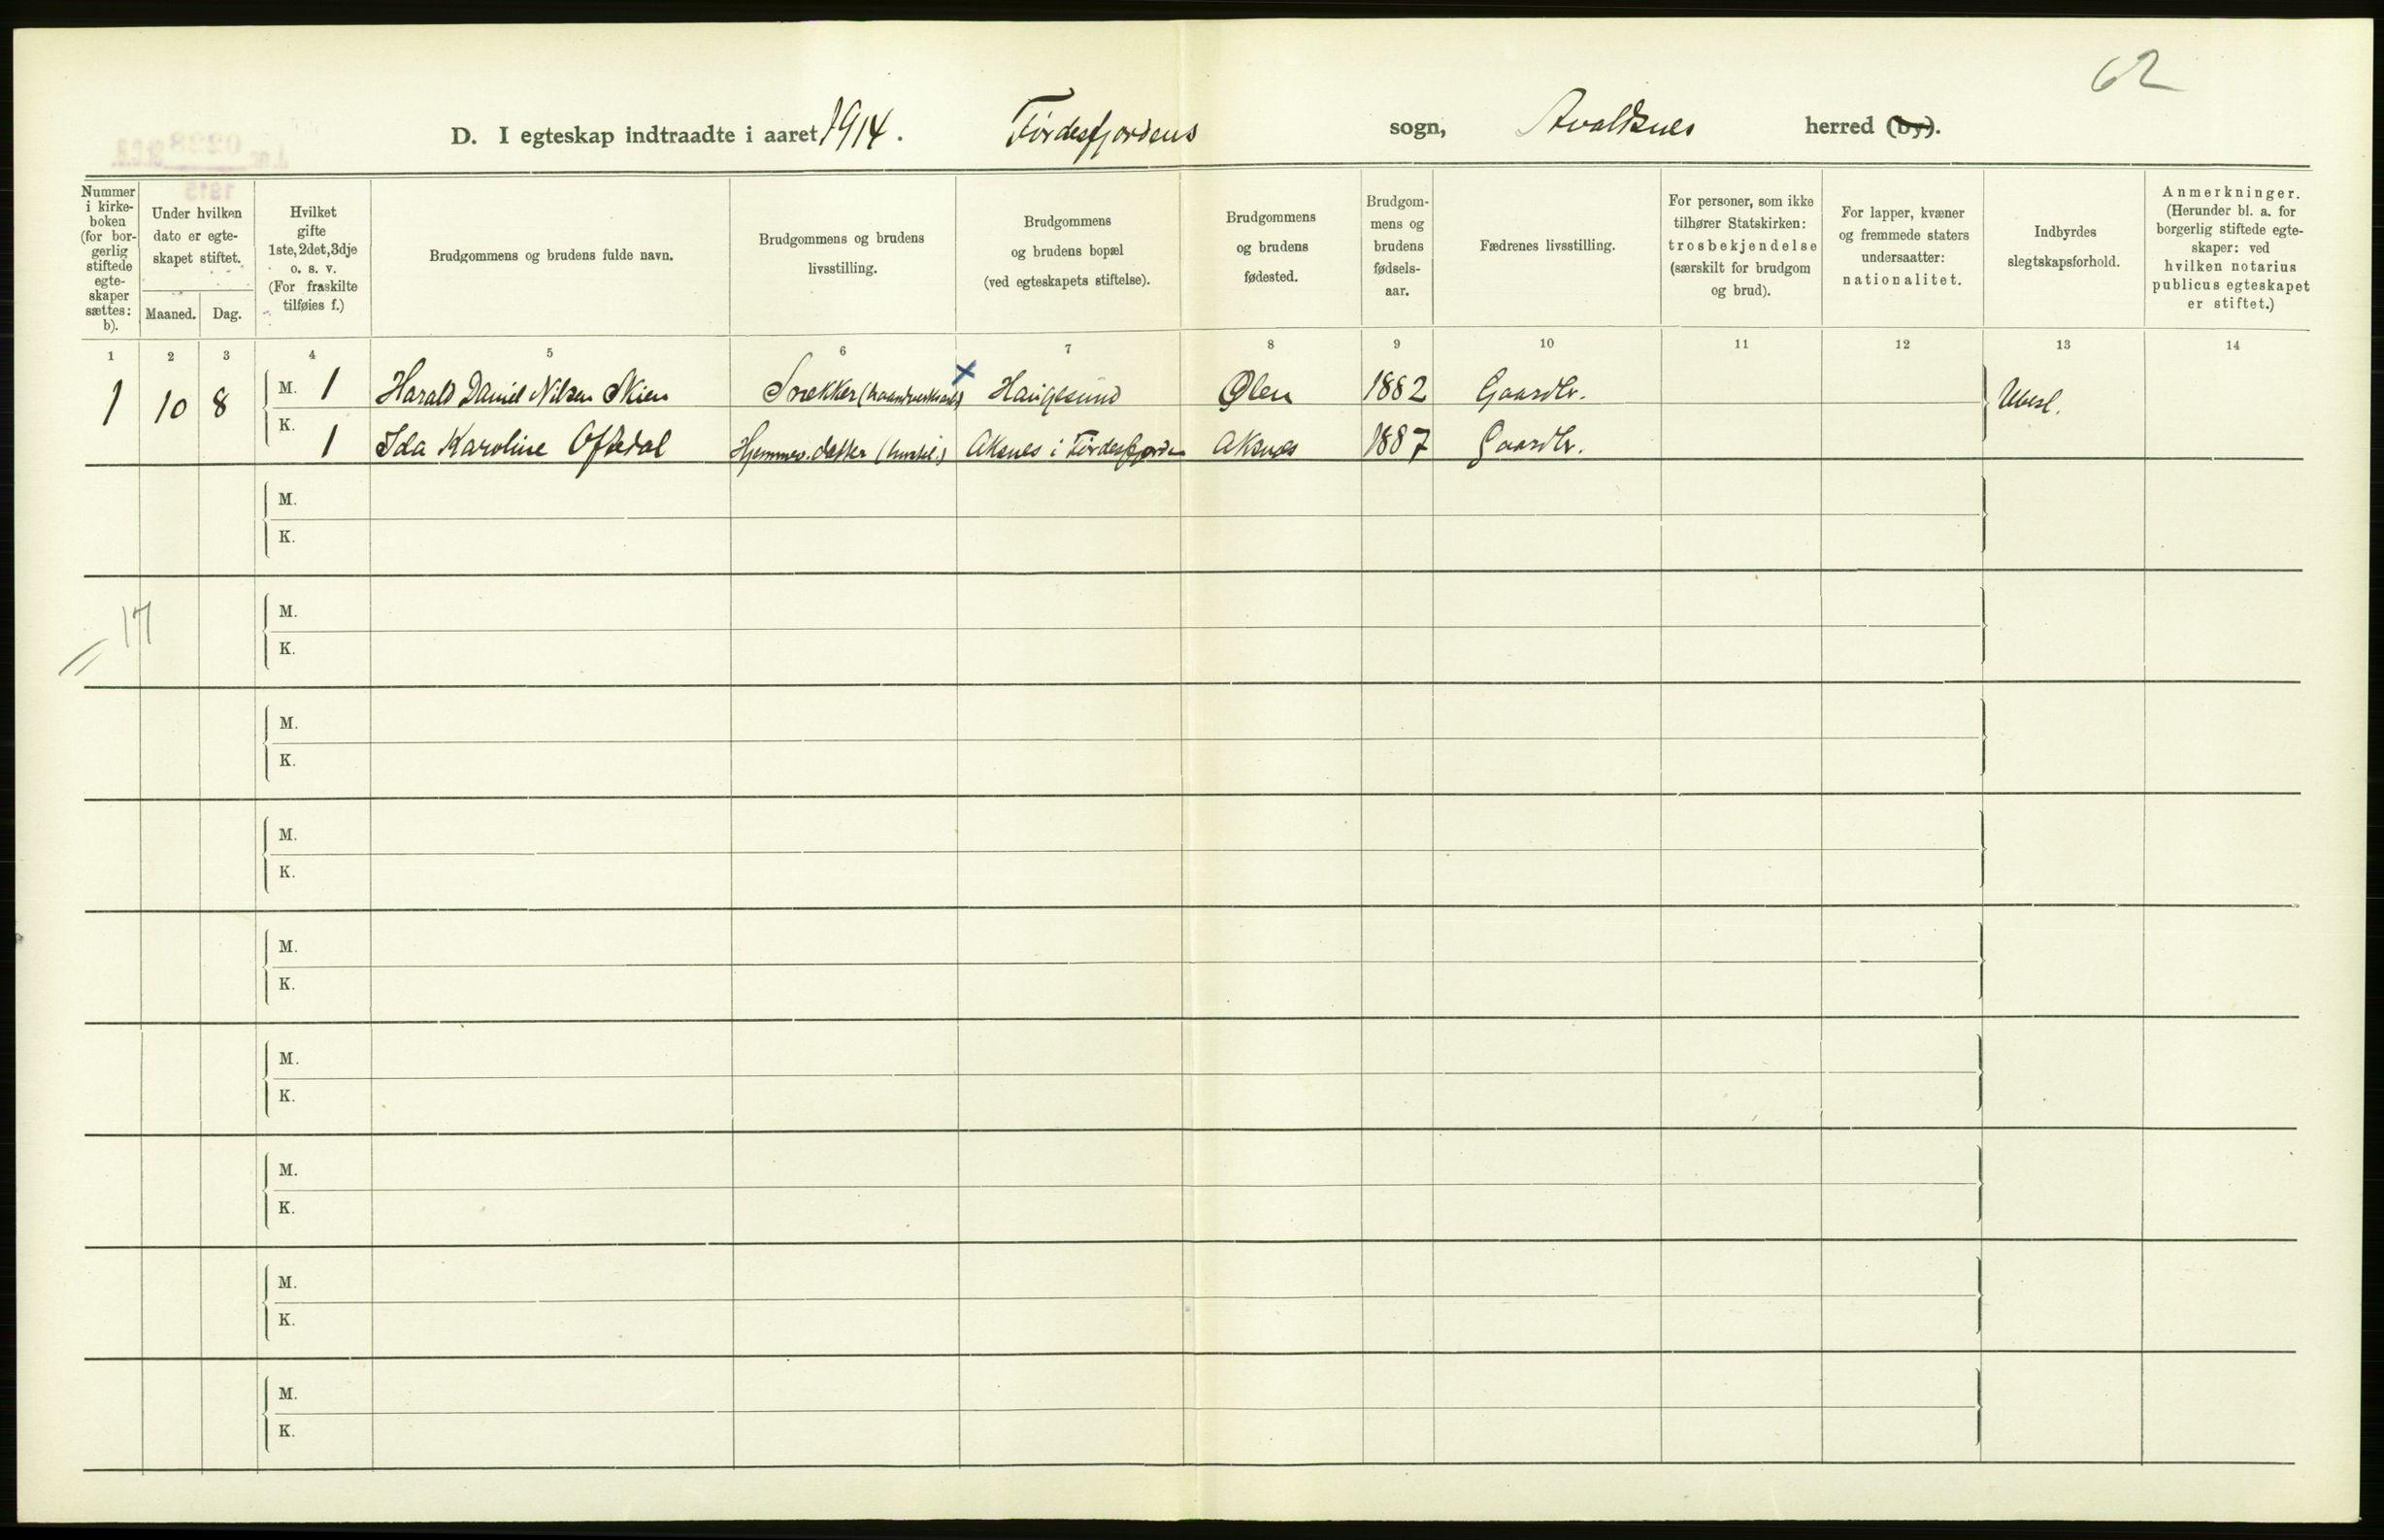 62
D. I egteskap indtraadte i aaret 1914. Førdesfjordens sogn, Avaldsnes herred (by).
Nummer i kirke-boken (for bor-gerlig stiftede egte-skaper sættes: b).
Under hvilken dato er egte-skapet stiftet.
Maaned. Dag.
Hvilket gifte 1ste, 2det, 3dje o. s. v. (For fraskilte tilføies f.)
Brudgommens og brudens fulde navn.
Brudgommens og brudens livsstilling.
Brudgommens og brudens bopæl (ved egteskapets stiftelse).
Brudgommens og brudens fødested.
Brudgom-mens og brudens fødsels-aar.
Fædrenes livsstilling.
For personer, som ikke tilhører Statskirken: trosbekjendelse (særskilt for brudgom og brud).
For lapper, kvæner og fremmede staters undersaatter: nationalitet.
Indbyrdes slegtskapsforhold.
Anmerkninger. (Herunder bl. a. for borgerlig stiftede egte-skaper: ved hvilken notarius publicus egteskapet er stiftet.)
1 2 3 4 5 6 7 8 9 10 11 12 13 14
1 10 8 M. 1 Harald Daniel Nilsen Skien Snekker x Haugesund Ølen 1882 Gaardbr. Ubesl.
K. 1 Ida Karoline Oftedal Hjemmev. datter Aksnes i Førdesfjorden Aksnes 1887 Gaardbr.
M.
K.
17 M.
K.
M.
K.
M.
K.
M.
K.
M.
K.
M.
K.
M.
K.
M.
K.